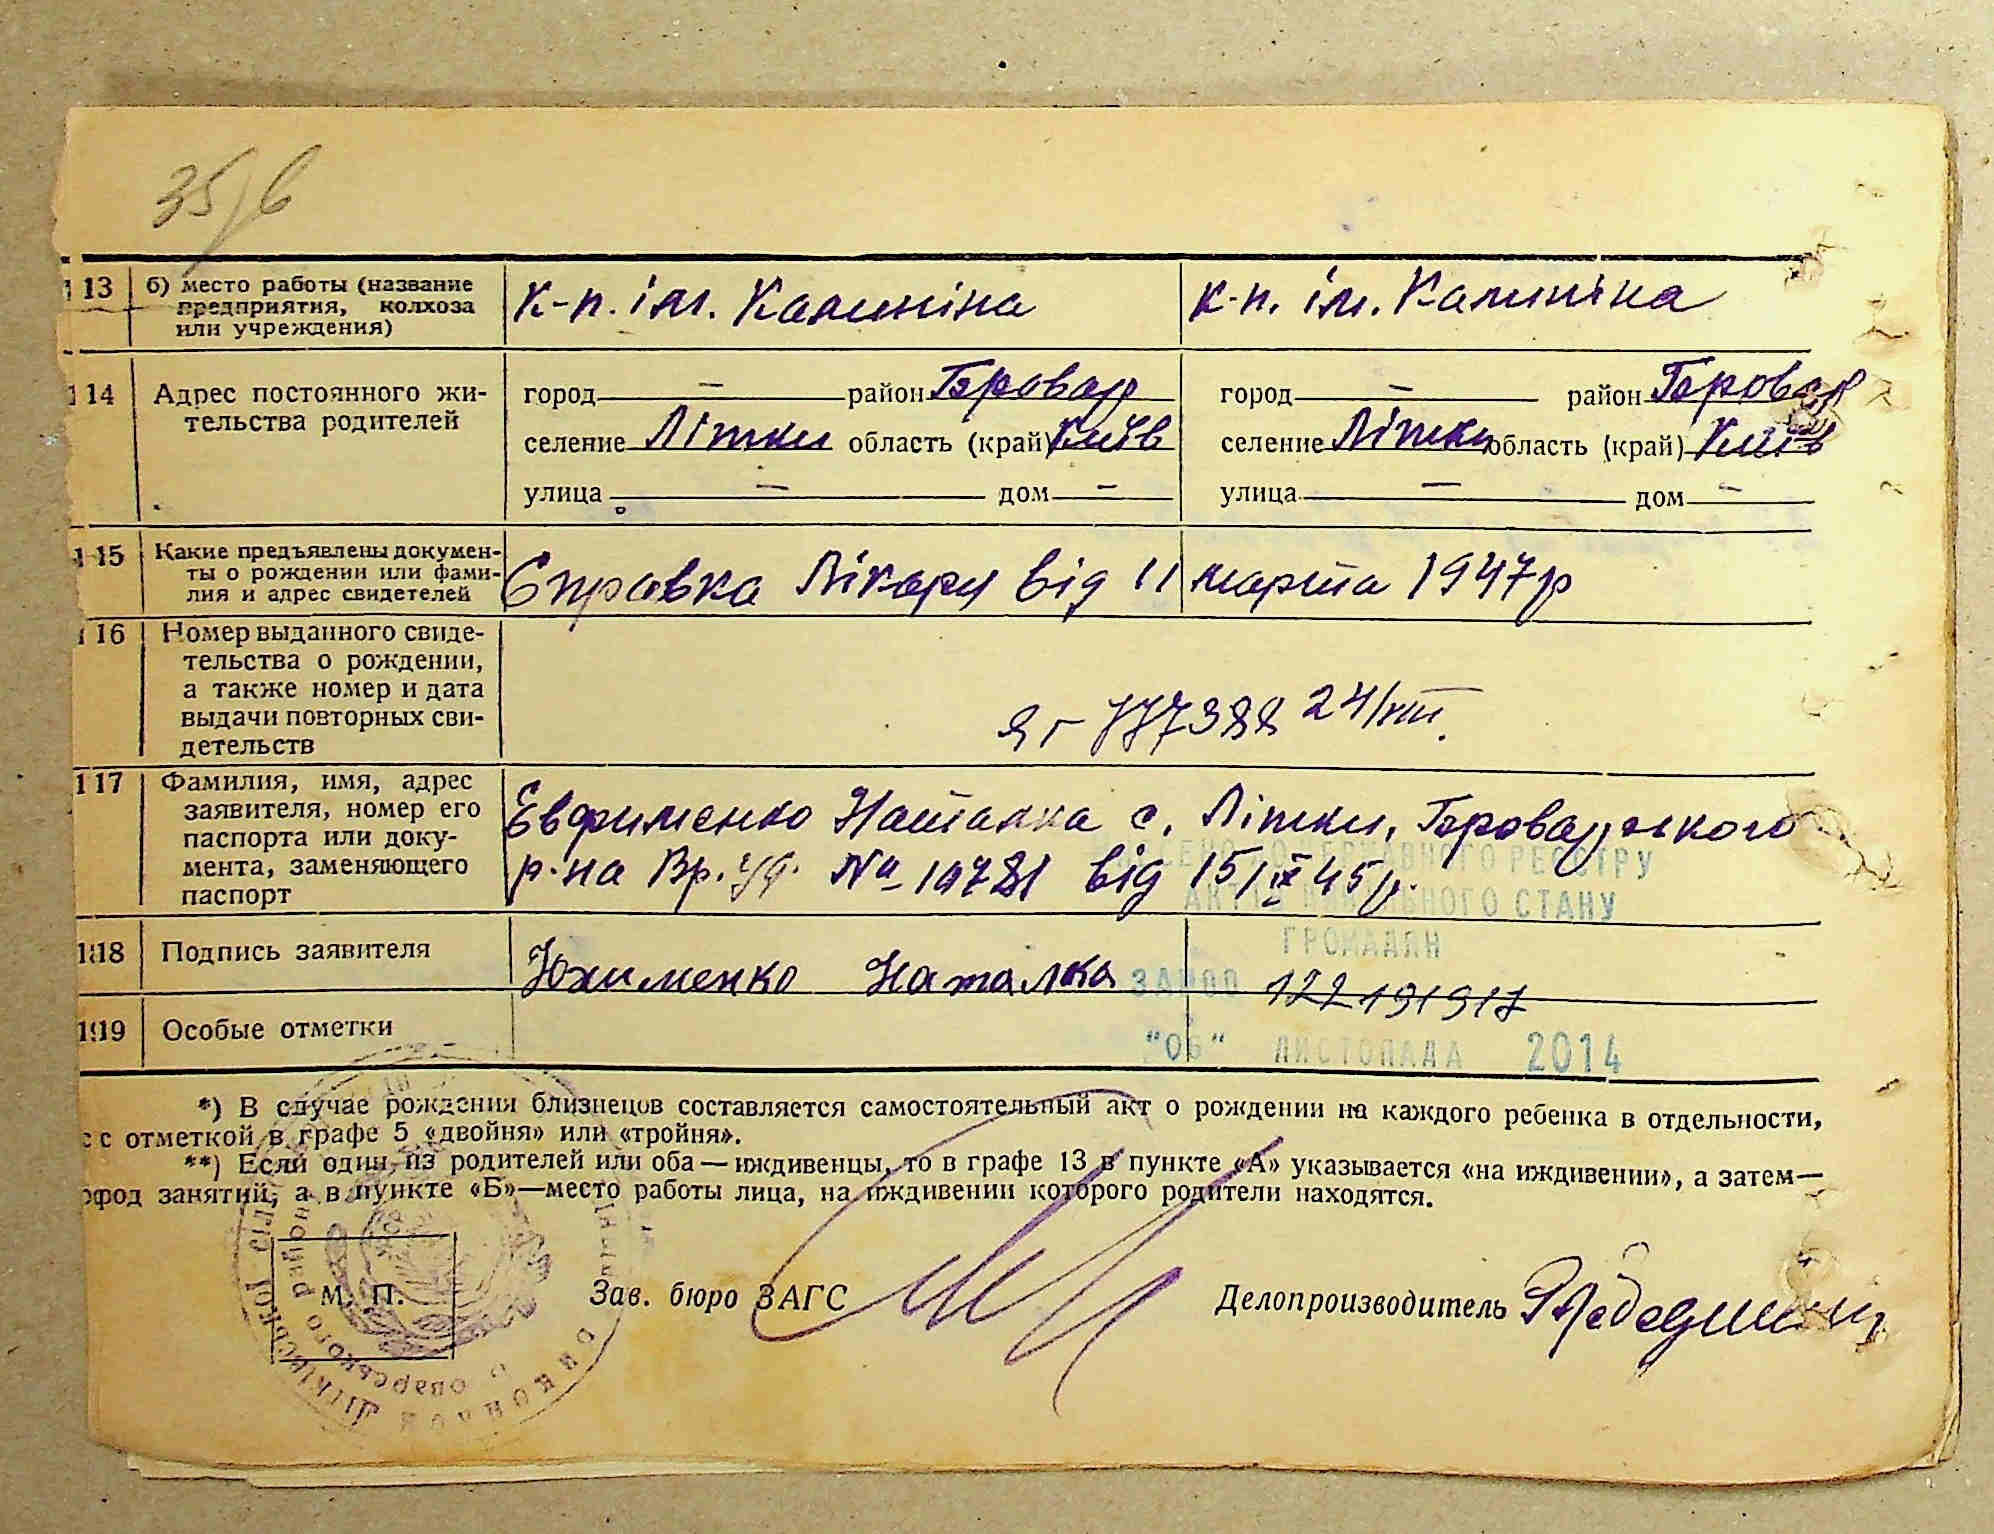 35/в
13 б) место работы (название предприятия, колхоза или учреждения) К-п. ім. Калиніна К-п. ім. Калиніна
14 Адрес постоянного жи-
тельства родителей
город — район Бровар город — район Бровар
селение Літки область (край) Київ селение Літки область (край) Київ
улица — дом — улица — дом —
15 Какие предъявлены докумен-
ты о рождении или фами-
лия и адрес свидетелей
Справка Лікаря від 11 марта 1947р
16 Номер выданного свиде-
тельства о рождении,
а также номер и дата
выдачи повторных сви-
детельств
24/VIII.
17 Фамилия, имя, адрес
заявителя, номер его
паспорта или доку-
мента, заменяющего
паспорт
Евфименко Наталка с. Літки, Броварського
р-на Вр. уд. № від 15/IX 45р.
ВНЕСЕНО ДО ДЕРЖАВНОГО РЕЄСТРУ
АКТІВ ЦИВІЛЬНОГО СТАНУ
ГРОМАДЯН
18 Подпись заявителя Юхименко Наталка
19 Особые отметки
"06" ЛИСТОПАДА 2014
*) В случае рождения близнецов составляется самостоятельный акт о рождении на каждого ребенка в отдельности,
с отметкой в графе 5 «двойня» или «тройня».
**) Если один из родителей или оба — иждивенцы, то в графе 13 в пункте «А» указывается «на иждивении», а затем—
род занятий, а в пункте «Б»—место работы лица, на иждивении которого родители находятся.
М. П. Зав. бюро ЗАГС Делопроизводитель